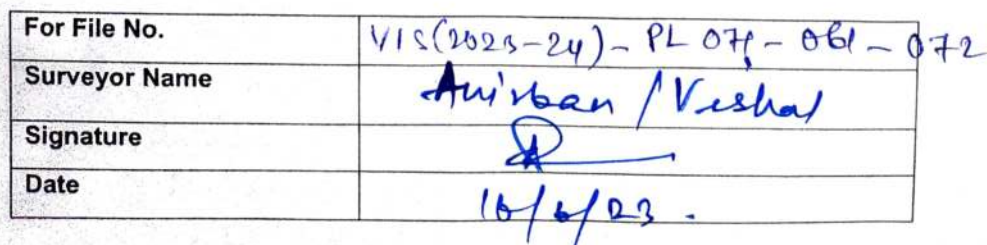 For File No. VIS(2023-24)-PL 075-061-072
Surveyor Name Anirban / Vishal
Signature
Date 16/6/23.